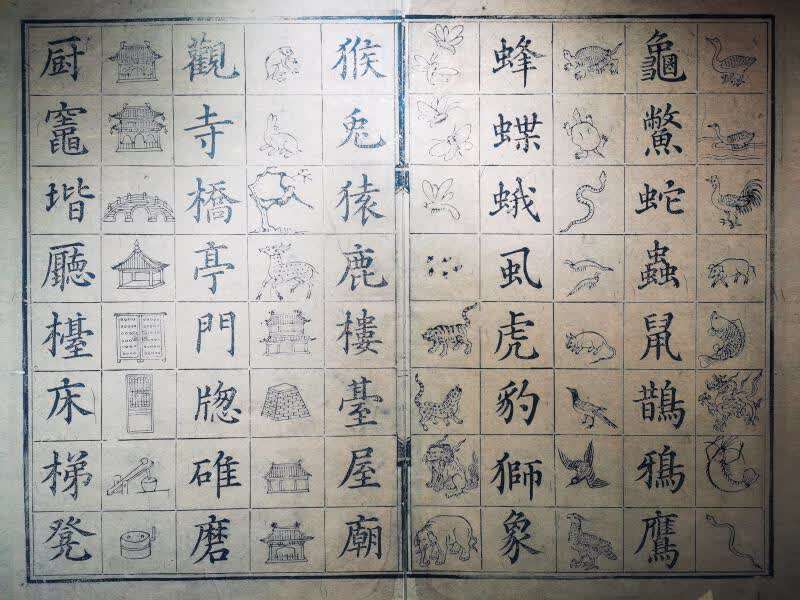 龜
鱉
蛇
蟲
鼠
鵲
鴉
鷹
蜂
蝶
蛾
虱
虎
豹
獅
象
猴
兎
猿
鹿
樓
臺
屋
廟
觀
寺
橋
亭
門
牎
碓
磨
厨
竈
堦
廳
檯
床
梯
凳